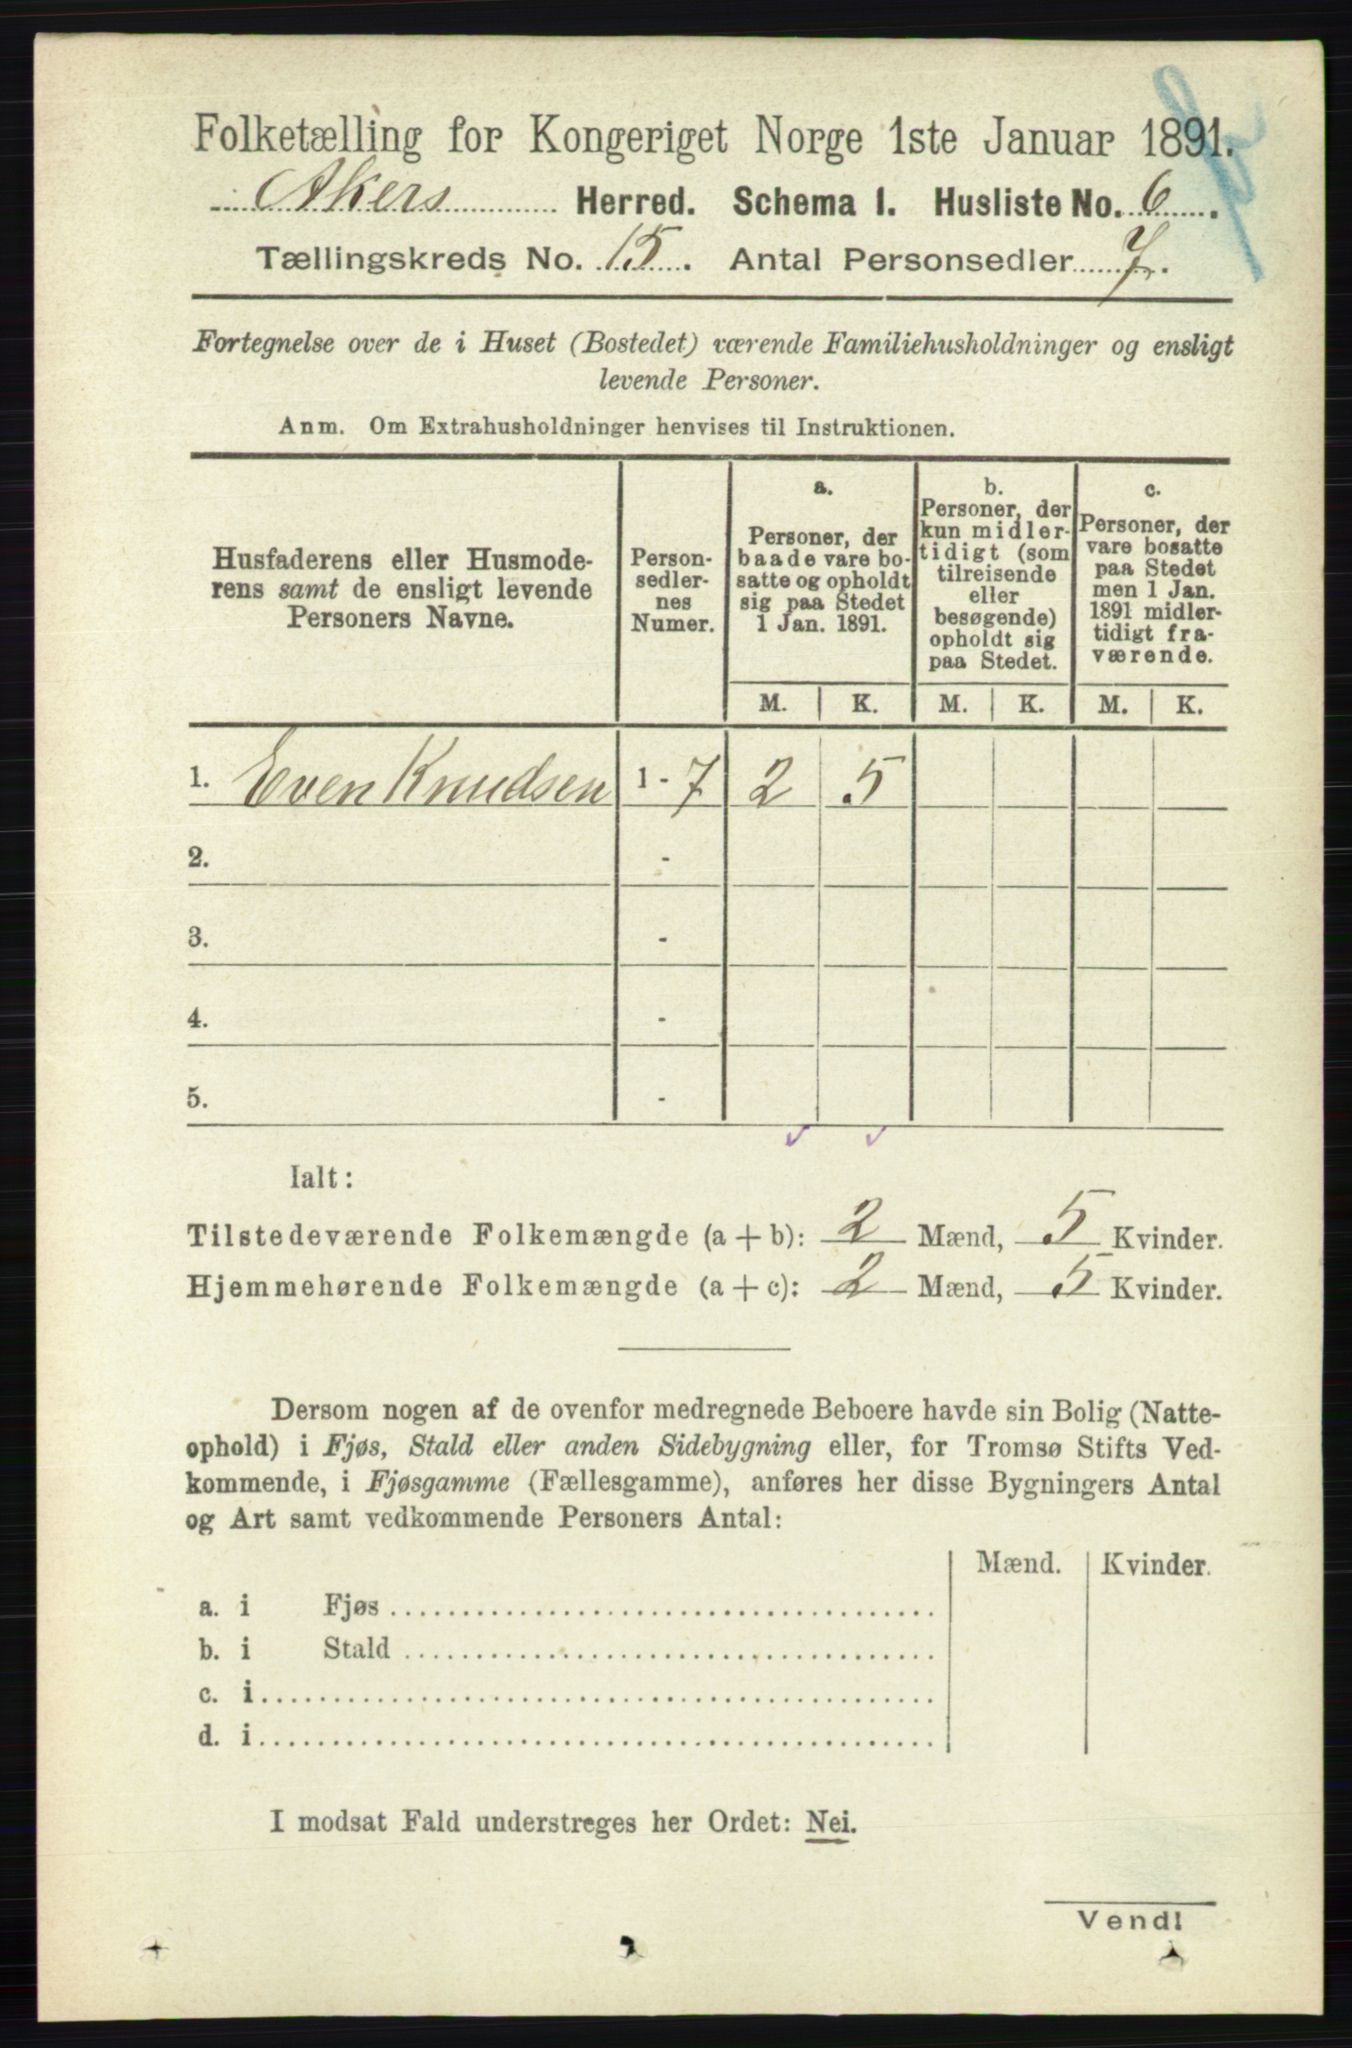 Folketælling for Kongeriget Norge 1ste Januar 1891.
Akers Herred. Schema 1. Husliste No. 6.
Tællingskreds No. 15. Antal Personsedler 7.
Fortegnelse over de i Huset (Bostedet) værende Familiehusholdninger og ensligt
levende Personer.
Anm. Om Extrahusholdninger henvises til Instruktionen.
Husfaderens eller Husmode-
rens samt de ensligt levende
Personers Navne.
Person-
sedler-
nes
Numer.
a.
Personer, der
baade vare bo-
satte og opholdt
sig paa Stedet
1 Jan. 1891.
b.
Personer, der
kun midler-
tidigt (som
tilreisende
eller
besøgende)
opholdt sig
paa Stedet.
c.
Personer, der
vare bosatte
paa Stedet
men 1 Jan.
1891 midler-
tidigt fra-
værende.
M. K. M. K. M. K.
1. Even Knudsen 1 - 7 2 5
2. -
3. -
4. -
5. -
Ialt:
Tilstedeværende Folkemængde (a + b): 2 Mænd, 5 Kvinder.
Hjemmehørende Folkemængde (a + c): 2 Mænd, 5 Kvinder.
Dersom nogen af de ovenfor medregnede Beboere havde sin Bolig (Natte-
ophold) i Fjøs, Stald eller anden Sidebygning eller, for Tromsø Stifts Ved-
kommende, i Fjøsgamme (Fællesgamme), anføres her disse Bygningers Antal
og Art samt vedkommende Personers Antal:
Mænd. Kvinder.
a. i Fjøs
b. i Stald
c. i
d. i
I modsat Fald understreges her Ordet: Nei.
Vend!